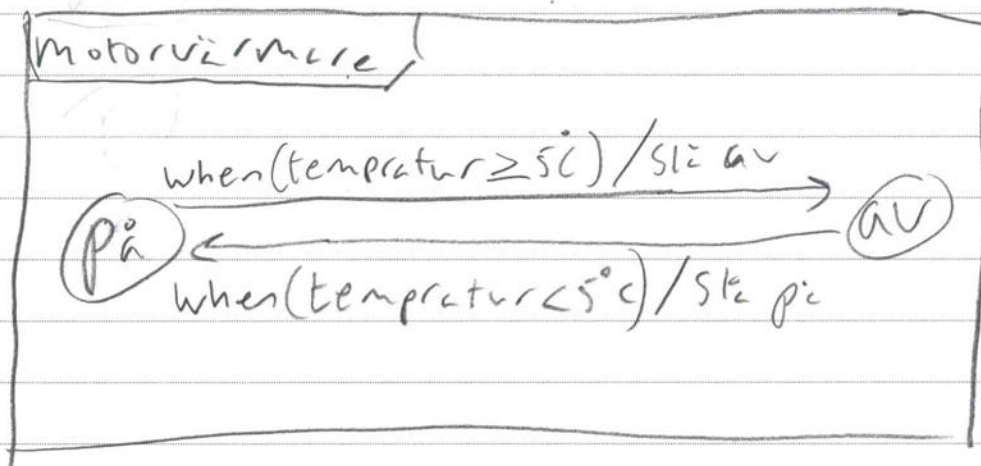 Motorvärmare
when(tempratur ≥ 5°C) / Slå av
på
av
when(tempratur < 5°C) / Slå på